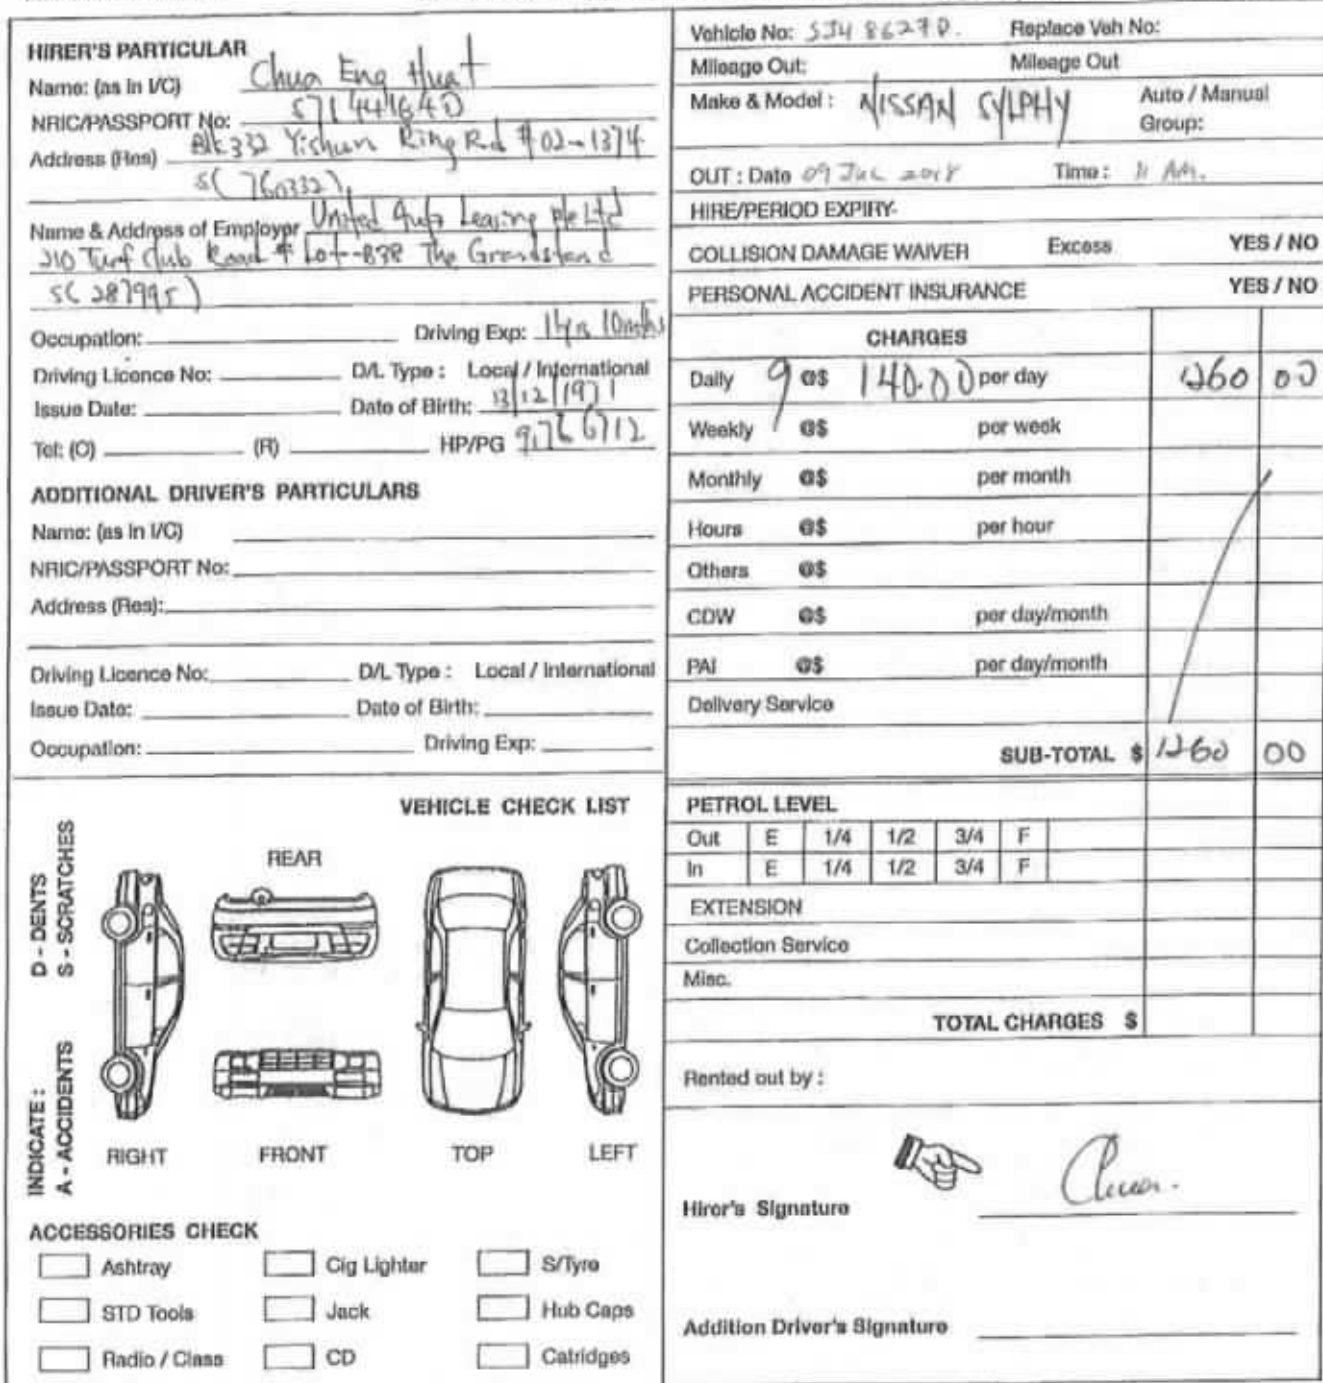 HIRER'S PARTICULAR
Name: (as in I/C) Chua Eng Huat
NRIC/PASSPORT No: S7144164D
Address (Res) Blk 332 Yishun Ring Rd #02-1374
S(760332)
Name & Address of Employer United Auto Leasing Pte Ltd
210 Turf Club Road # Lot-B38 The Grandstand
S(287995)
Occupation: Driving Exp: 10mths
Driving Licence No: D/L Type : Local / International
Issue Date: Date of Birth: 13/12/1971
Tel: (O) (R) HP/PG 91766712
ADDITIONAL DRIVER'S PARTICULARS
Name: (as in I/C)
NRIC/PASSPORT No:
Address (Res):
Driving Licence No: D/L Type : Local / International
Issue Date: Date of Birth:
Occupation: Driving Exp:
VEHICLE CHECK LIST
INDICATE :
A - ACCIDENTS
D - DENTS
S - SCRATCHES
REAR
RIGHT FRONT TOP LEFT
ACCESSORIES CHECK
Ashtray Cig Lighter S/Tyre
STD Tools Jack Hub Caps
Radio / Class CD Catridges
Vehicle No: Replace Veh No:
Mileage Out: Mileage Out
Make & Model : NISSAN SYLPHY Auto / Manual
Group:
OUT : Date 09 JUL 2018 Time : 11 AM.
HIRE/PERIOD EXPIRY-
COLLISION DAMAGE WAIVER Excess YES / NO
PERSONAL ACCIDENT INSURANCE YES / NO
CHARGES
Daily 9 @$ 140.00 per day 1260 00
Weekly @$ per week
Monthly @$ per month
Hours @$ per hour
Others @$
CDW @$ per day/month
PAI @$ per day/month
Delivery Service
SUB-TOTAL $ 1260 00
PETROL LEVEL
Out E 1/4 1/2 3/4 F
In E 1/4 1/2 3/4 F
EXTENSION
Collection Service
Misc.
TOTAL CHARGES $
Rented out by :
Hirer's Signature Chua.
Addition Driver's Signature